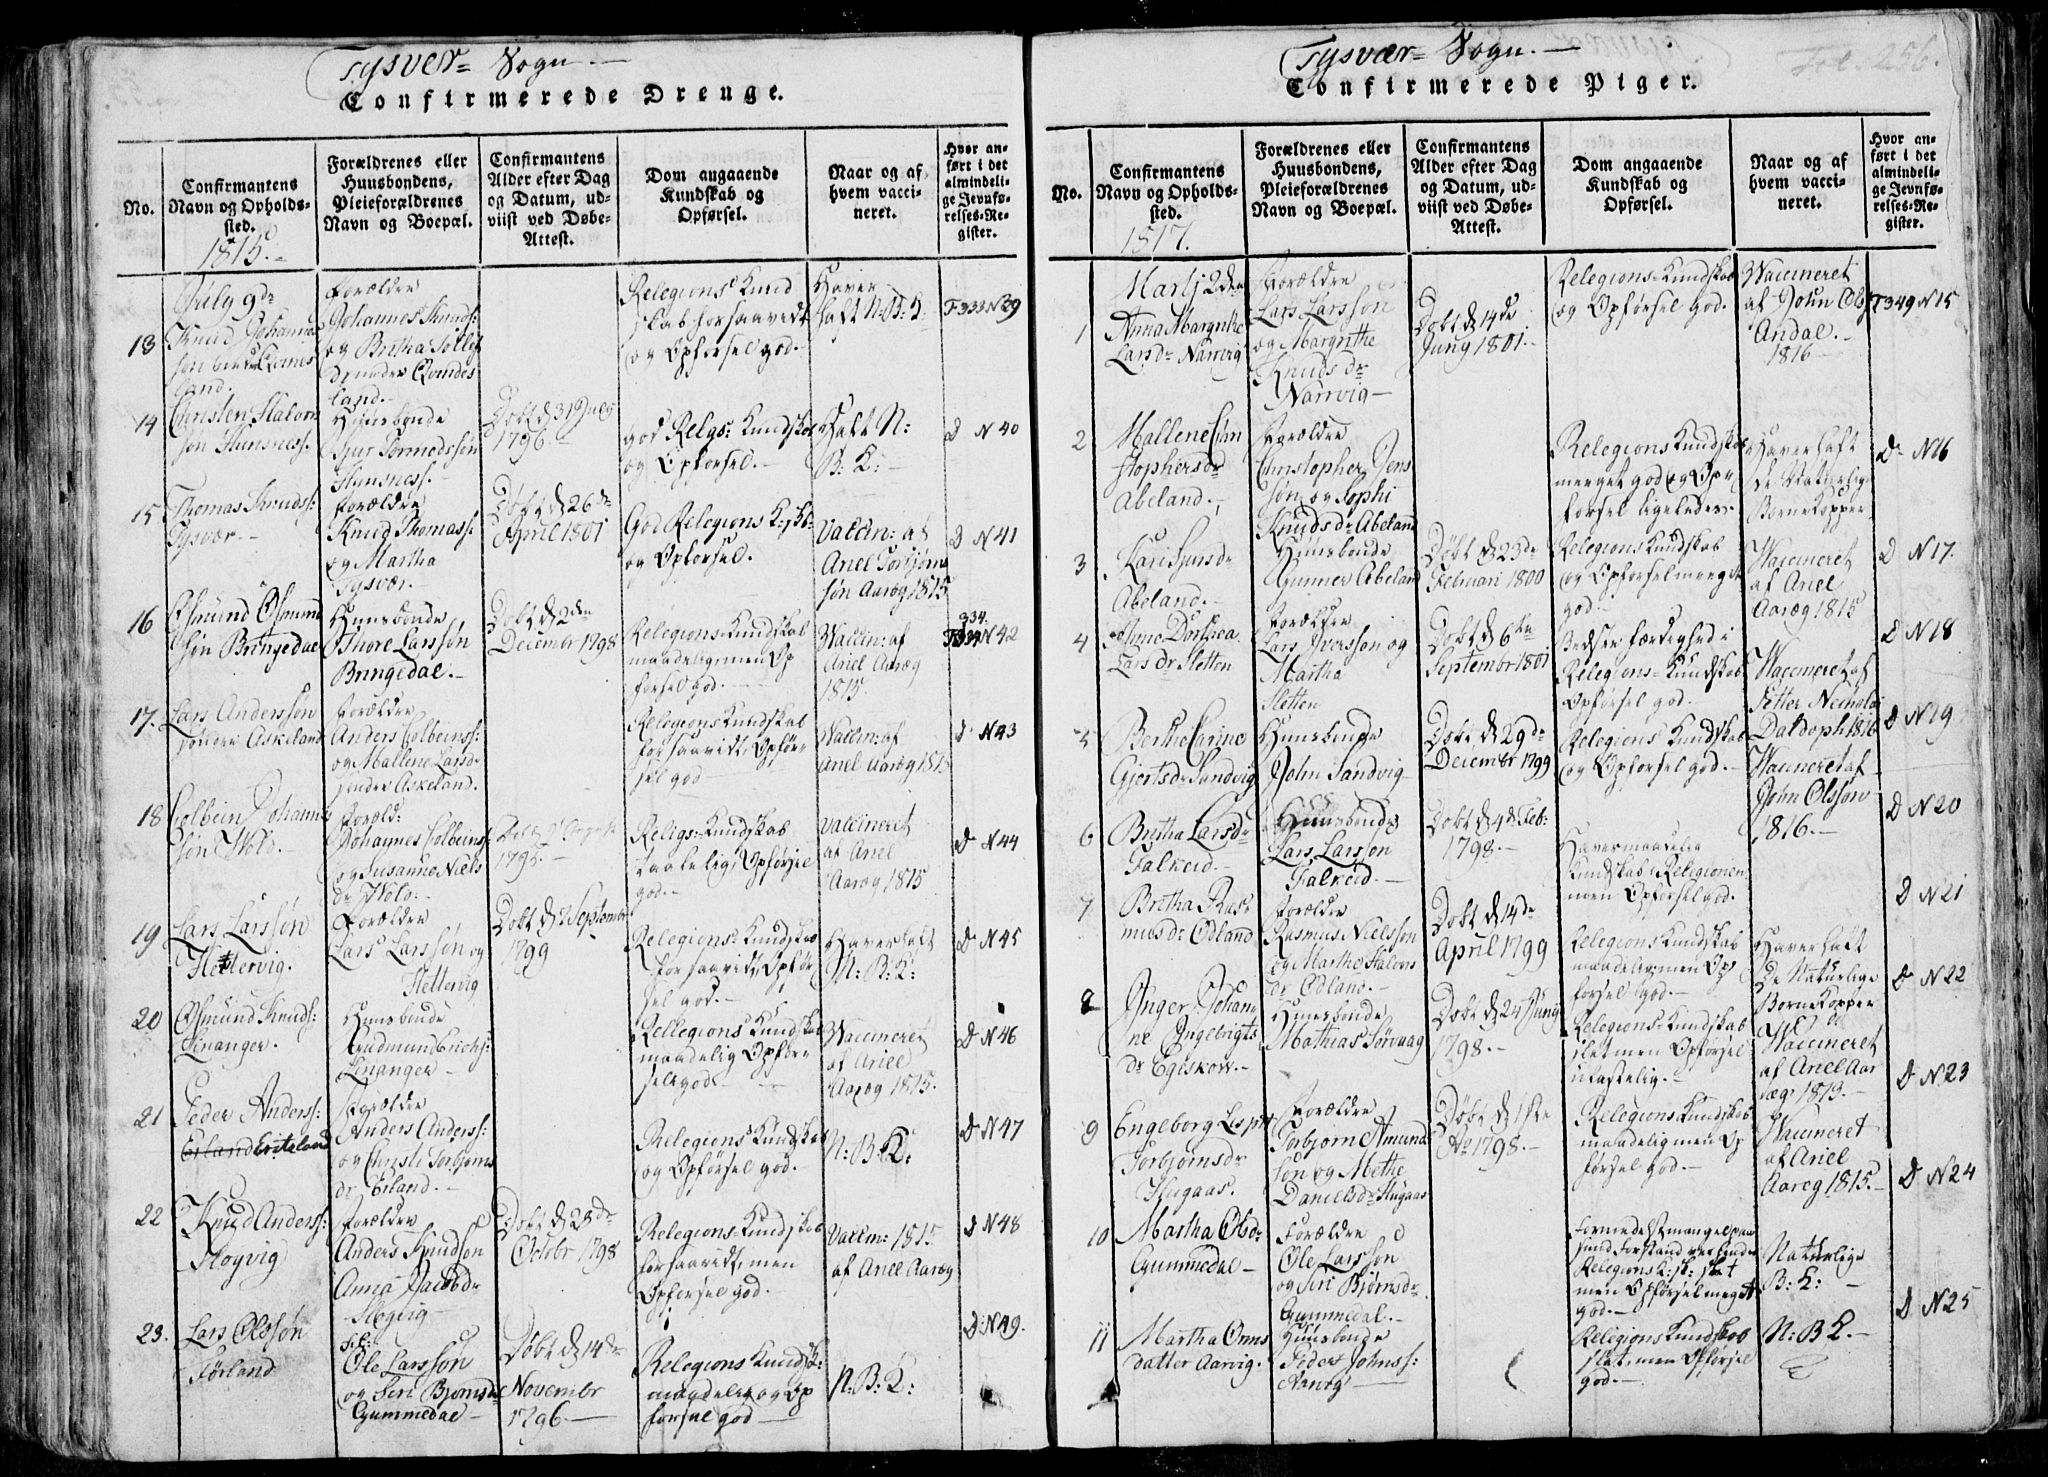 Tysvær= Sogn.—
Confirmerede Drenge.
No.
Confirmantens
Navn og Opholds-
sted.
Forældrenes eller
Huusbondens,
Pleieforældrenes
Navn og Boepæl.
Confirmantens
Alder efter Dag
og Datum, ud-
viist ved Døbe-
Attest.
Dom angaaende
Kundskab og
Opførsel.
Naar og af
hvem vacci-
neret.
Hvor an-
ført i det
almindeli-
ge Jevnfø-
relses-Re-
gister.
1815.
July 9de
13
Knud Johannes
søn
land.
Forældre
Johannes Knuds:
og Bertha
land.
Religions Kund
skab forsaavidt
og Opførsel god.
Haver
haft N: B: K:
F 333 N 39
14
Christen Halvor
søn Hunsness.
Huusbonde
Sjur Tormodssøn
Hunsness.
Døbt d 31 July
1796.
God Relgs: Kundskab
og Opførsel.—
Haft N:
B: K:
D N 40
15
Thomas Knuds:
Tysvær.
Forældre
Knud Thomass:
og Martha
Tysvær.
Døbt d 26de
April 1801
God Religions K:skb:
og Opførsel.
Vaccin: af
Ariel Torbjørns
søn Aarøg 1815
D N 41
16
Osmund Osmund
søn Bringedal
Huusbonde
Snore Larssøn
Bringedal.—
Døbt d 2den
Decembr 1798
Religions Kundskab
maadelig, men Op
førsel god.
Vaccin: af
Ariel Aarøg
1815.
334.
N 42
17.
Lars Anderssøn
sønder Askeland
Forældre
Anders Colbeins:
og Mallene Larsd.
sønder Askeland.
Religions Kundskab
forsaavidt, Opfør
sel god
Vaccin: af
Ariel Aarøg 1815
D N 43
18
Colbein Johannes
søn Wold.
Foræld:
Johannes Colbeins
og Susanna Niels
dr Wold.
1795.—
Religs: Kundskab
taalelig, Opførsel
god.—
Vaccineret
af Ariel
Aarøg 1815
D N 44
19
Lars Larssøn
Hettervig.
Forældre
Lars Larssøn og
Hettervig
Døbt d Septembr
1799
Religions Kundskab
forsaavidt, Opfør
sel god.—
Haver haft
N: B: K:
D N 45
20
Osmund Knuds:
Lenanger.
Huusbonde
Gudmund Erichs:
Lenanger
Religions Kundskab
maadelig Opfør
sel god.
Vaccineret
af Ariel
Aarøg 1815.
D N 46
21
Peder Anderss:
Erland
Forældre
Anders Anderss:
og Christi Torbjørns
dr Erland.—
Religions Kundskab
og Opførsel god.—
N: B: K:
D N 47
22
Knud Anderss:
Høgvig
Forældre
Anders Knudsøn
Anna Jacobdr
Høgvig
Døbt d 28de
Octobr 1798
Religions Kundskab
forsaavidt, men
Opførsel god.
Vaccin: 1815
af Ariel Aarøg
D N 48
23.
Lars Olssøn
Førland
Ole Larssøn
og Siri Bjørnsdr
Gummedal
Døbt d 14de
Novembr
1796.—
Religions Kundsk:
maadelig og Op
førsel god—
N: B: K:
D: N 49.
Tysvær= Sogn.—
Fol. 256.
Confirmerede Piger.
No.
Confirmantens
Navn og Opholds-
sted.
Forældrenes eller
Huusbondens,
Pleieforældrenes
Navn og Boepæl.
Confirmantens
Alder efter Dag
og Datum, ud-
viist ved Døbe-
Attest.
Dom angaaende
Kundskab og
Opførsel.
Naar og af
hvem vacci-
neret.
Hvor an-
ført i det
almindeli-
ge Jevnfø-
relses-Re-
gister.
1817.
Martj 2den
1
Anna Margrethe
Larsdr Narrvig
Forældre
Lars Larssøn
og Margrethe
Knudsdr
Narrvig—
Døbt d 14de
Juny 1801.
Religions Kundskab
og Opførsel god.
Vaccineret
af John Ols
Andal.
1816
F 349 N 15
2
Mallene Chri
stophersdr
Abeland.
Forældre
Christopher Jens
søn og Sophi
Knudsdr Abeland
Religions Kundskab
meeget god og Op
førsel ligeledes
Haver haft
de Naturlige
Børnekopper
D N 16
3
Kari Sjursdr
Abeland.
Huusbonde
Gunner Abeland
Døbt d 23de
Februari 1800
Religions Kundskab
og Opførsel meeget
god.
Vaccineret
af Ariel
Aarøg 1815
D N 17.
4
Anne Dorthea
Larsdr Sletten
Forældre
Lars Iverssøn og
Martha
Sletten
Døbt d 6te
Septembr 1801
Bedste Færdighed i
Religions Kundskab
Opførsel god.
Vaccineret af
Petter Nicholai
Daldoph 1816
D N 18
5
Berthe Carine
Gjertsdr Sandvig
Huusbonde
John Sandvig
Døbt d 29de
Decembr 1799
Religions Kundskab
og Opførsel god.
Vaccineret af
John Olssøn
1816.—
D N 19
6
Bertha Larsdr
Falkeid.
Huusbonde
Lars Larssøn
Falkeid.
Døbt d 4de Feb:
1798.
Haver maadelig
Kundskab i Religionen
men Opførsel god.
D N 20
7
Bertha Ras
musdr Ødland
Forældre
Rasmus Nielssøn
og Marthe Halvors
dr Ødland.
Døbt d 14de
April 1799
Religions Kundskab
maadelig, men Op
førsel god.
Haver haft
de Naturlige
Børnekopper
D N 21
8
Inger Johan
ne Ingebrigts
dr Egeskow.
Huusbonde
Mathias Sørvaag
Døbt d 24 Juny
1798.
Religions Kundskab
slet men Opførsel
ulastelig.
Vaccineret
af Ariel Aar
øg 1813.
D N 22
9
Engeborg
Torbjørnsdr
Hugaas.
Forældre
Torbjørn Amund
søn og Methe
Danielsdr Hugaas
Døbt d 1ste
1798.
Religions Kundskab
maadelig men Op
førsel god.
Vaccineret
af Ariel
Aarøg 1815.
D N 23
10
Martha Olsdr
Gummedal
Forældre
Ole Larssøn
og Siri Bjørnsdr
Gummedal.
sund Forstand
Religions K:sk: slet
men Opførsel meget
god.
Naturlige
B: K:
D N 24
11
Martha Orms
datter Aarvig.
Huusbonde
Peder Johnss:
Religions Kundskab
slet, men Opførsel
god.
N: B K.
D N 25